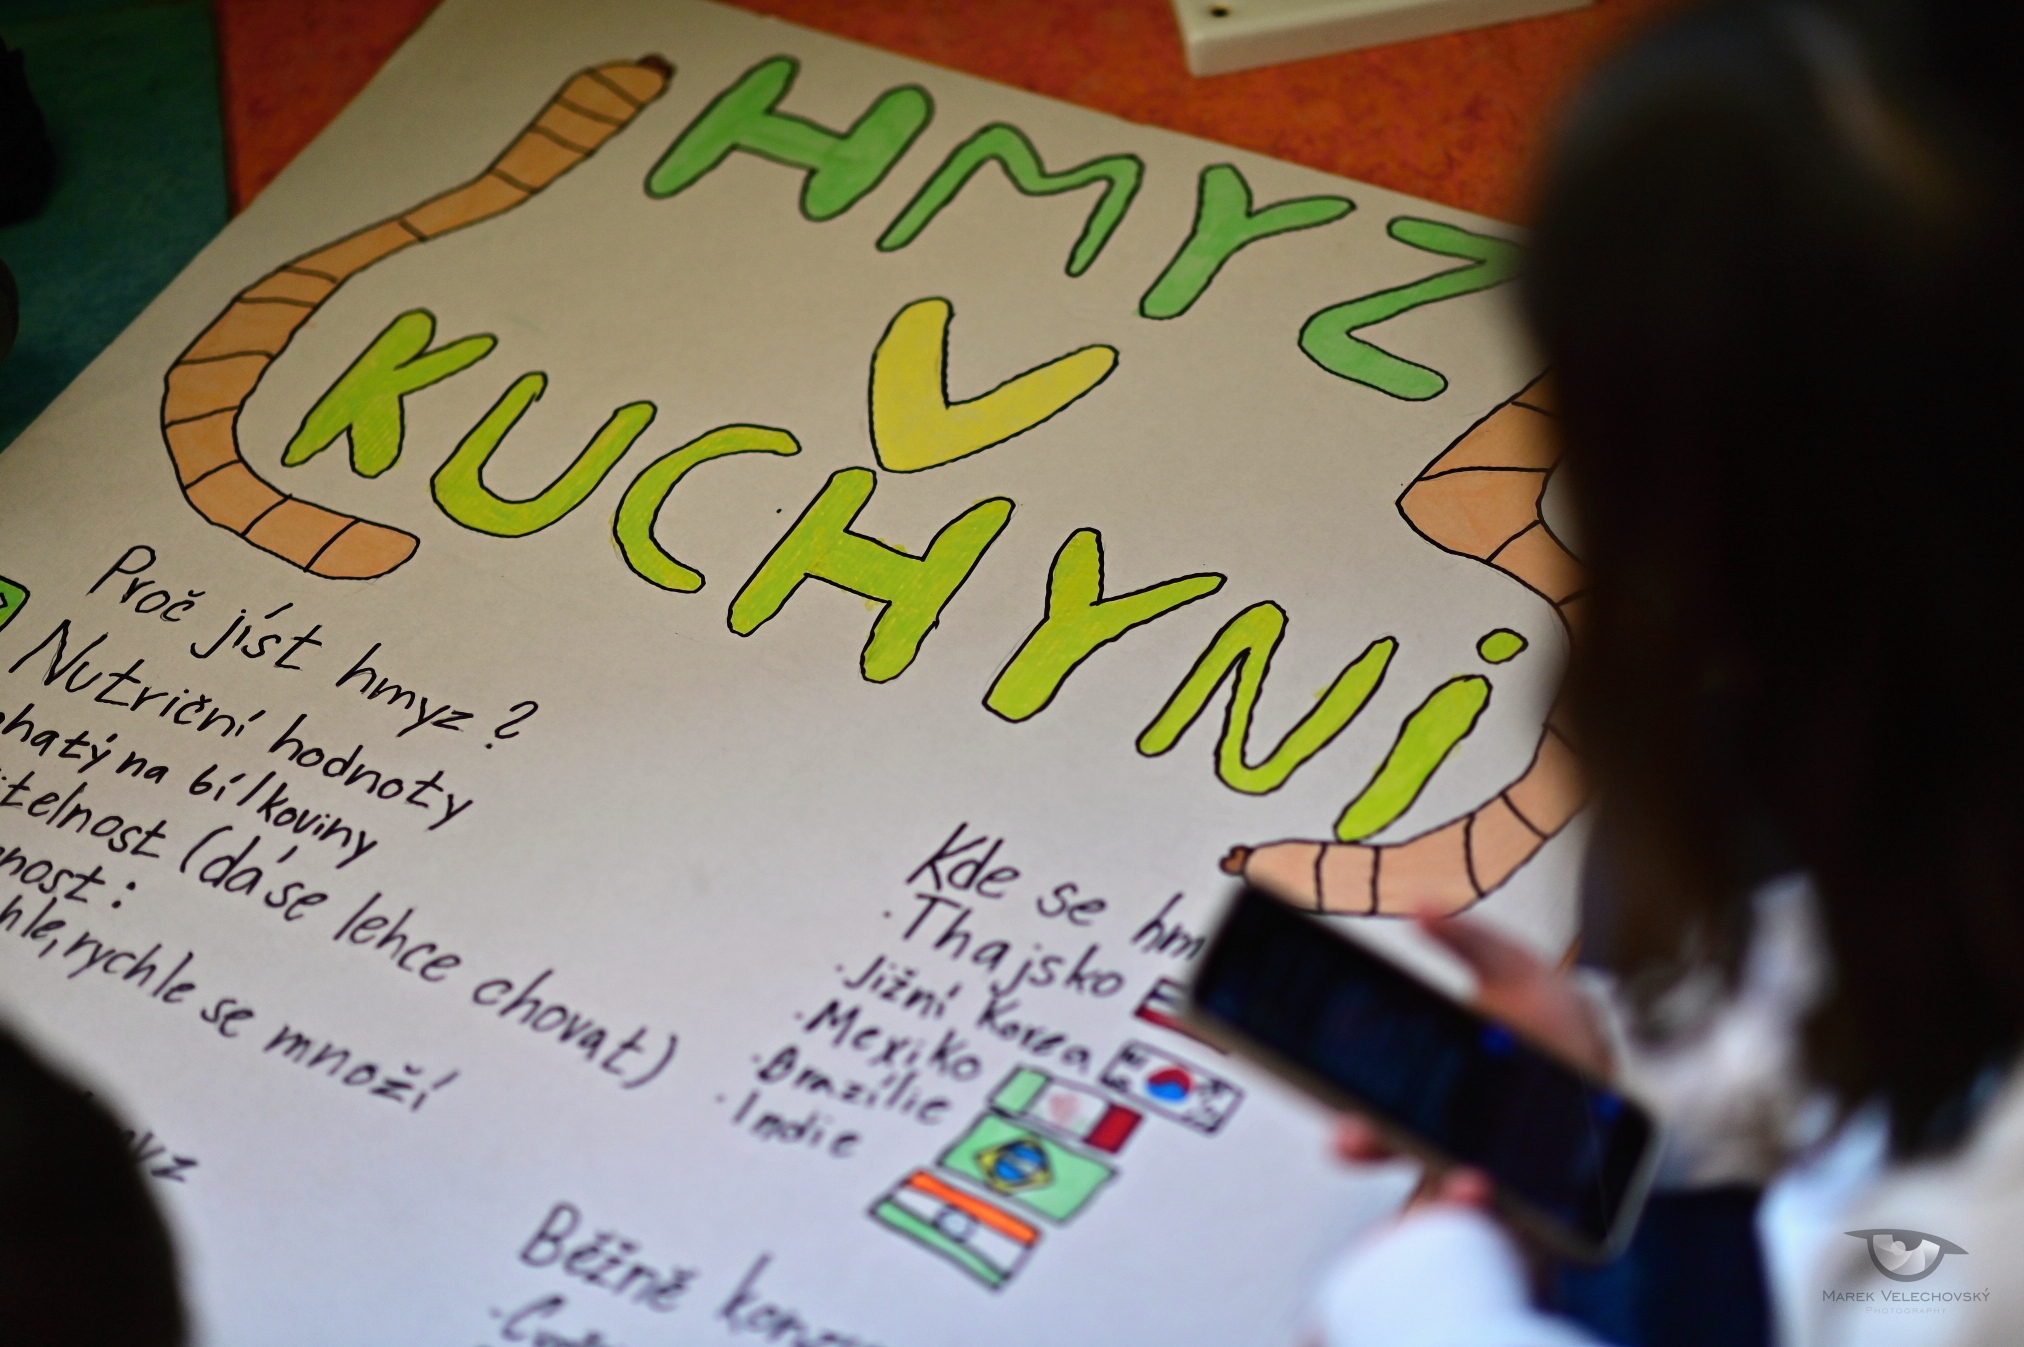 HMYZ
V
KUCHYNi
Proč jíst hmyz?
Nutriční hodnoty
na bílkoviny
(dá se lehce chovat)
rychle se množí
Kde se
· Thajsko
· Jižní Korea
· Mexiko
· Brazílie
· Indie
Běžně
MAREK VELECHOVSKÝ
PHOTOGRAPHY